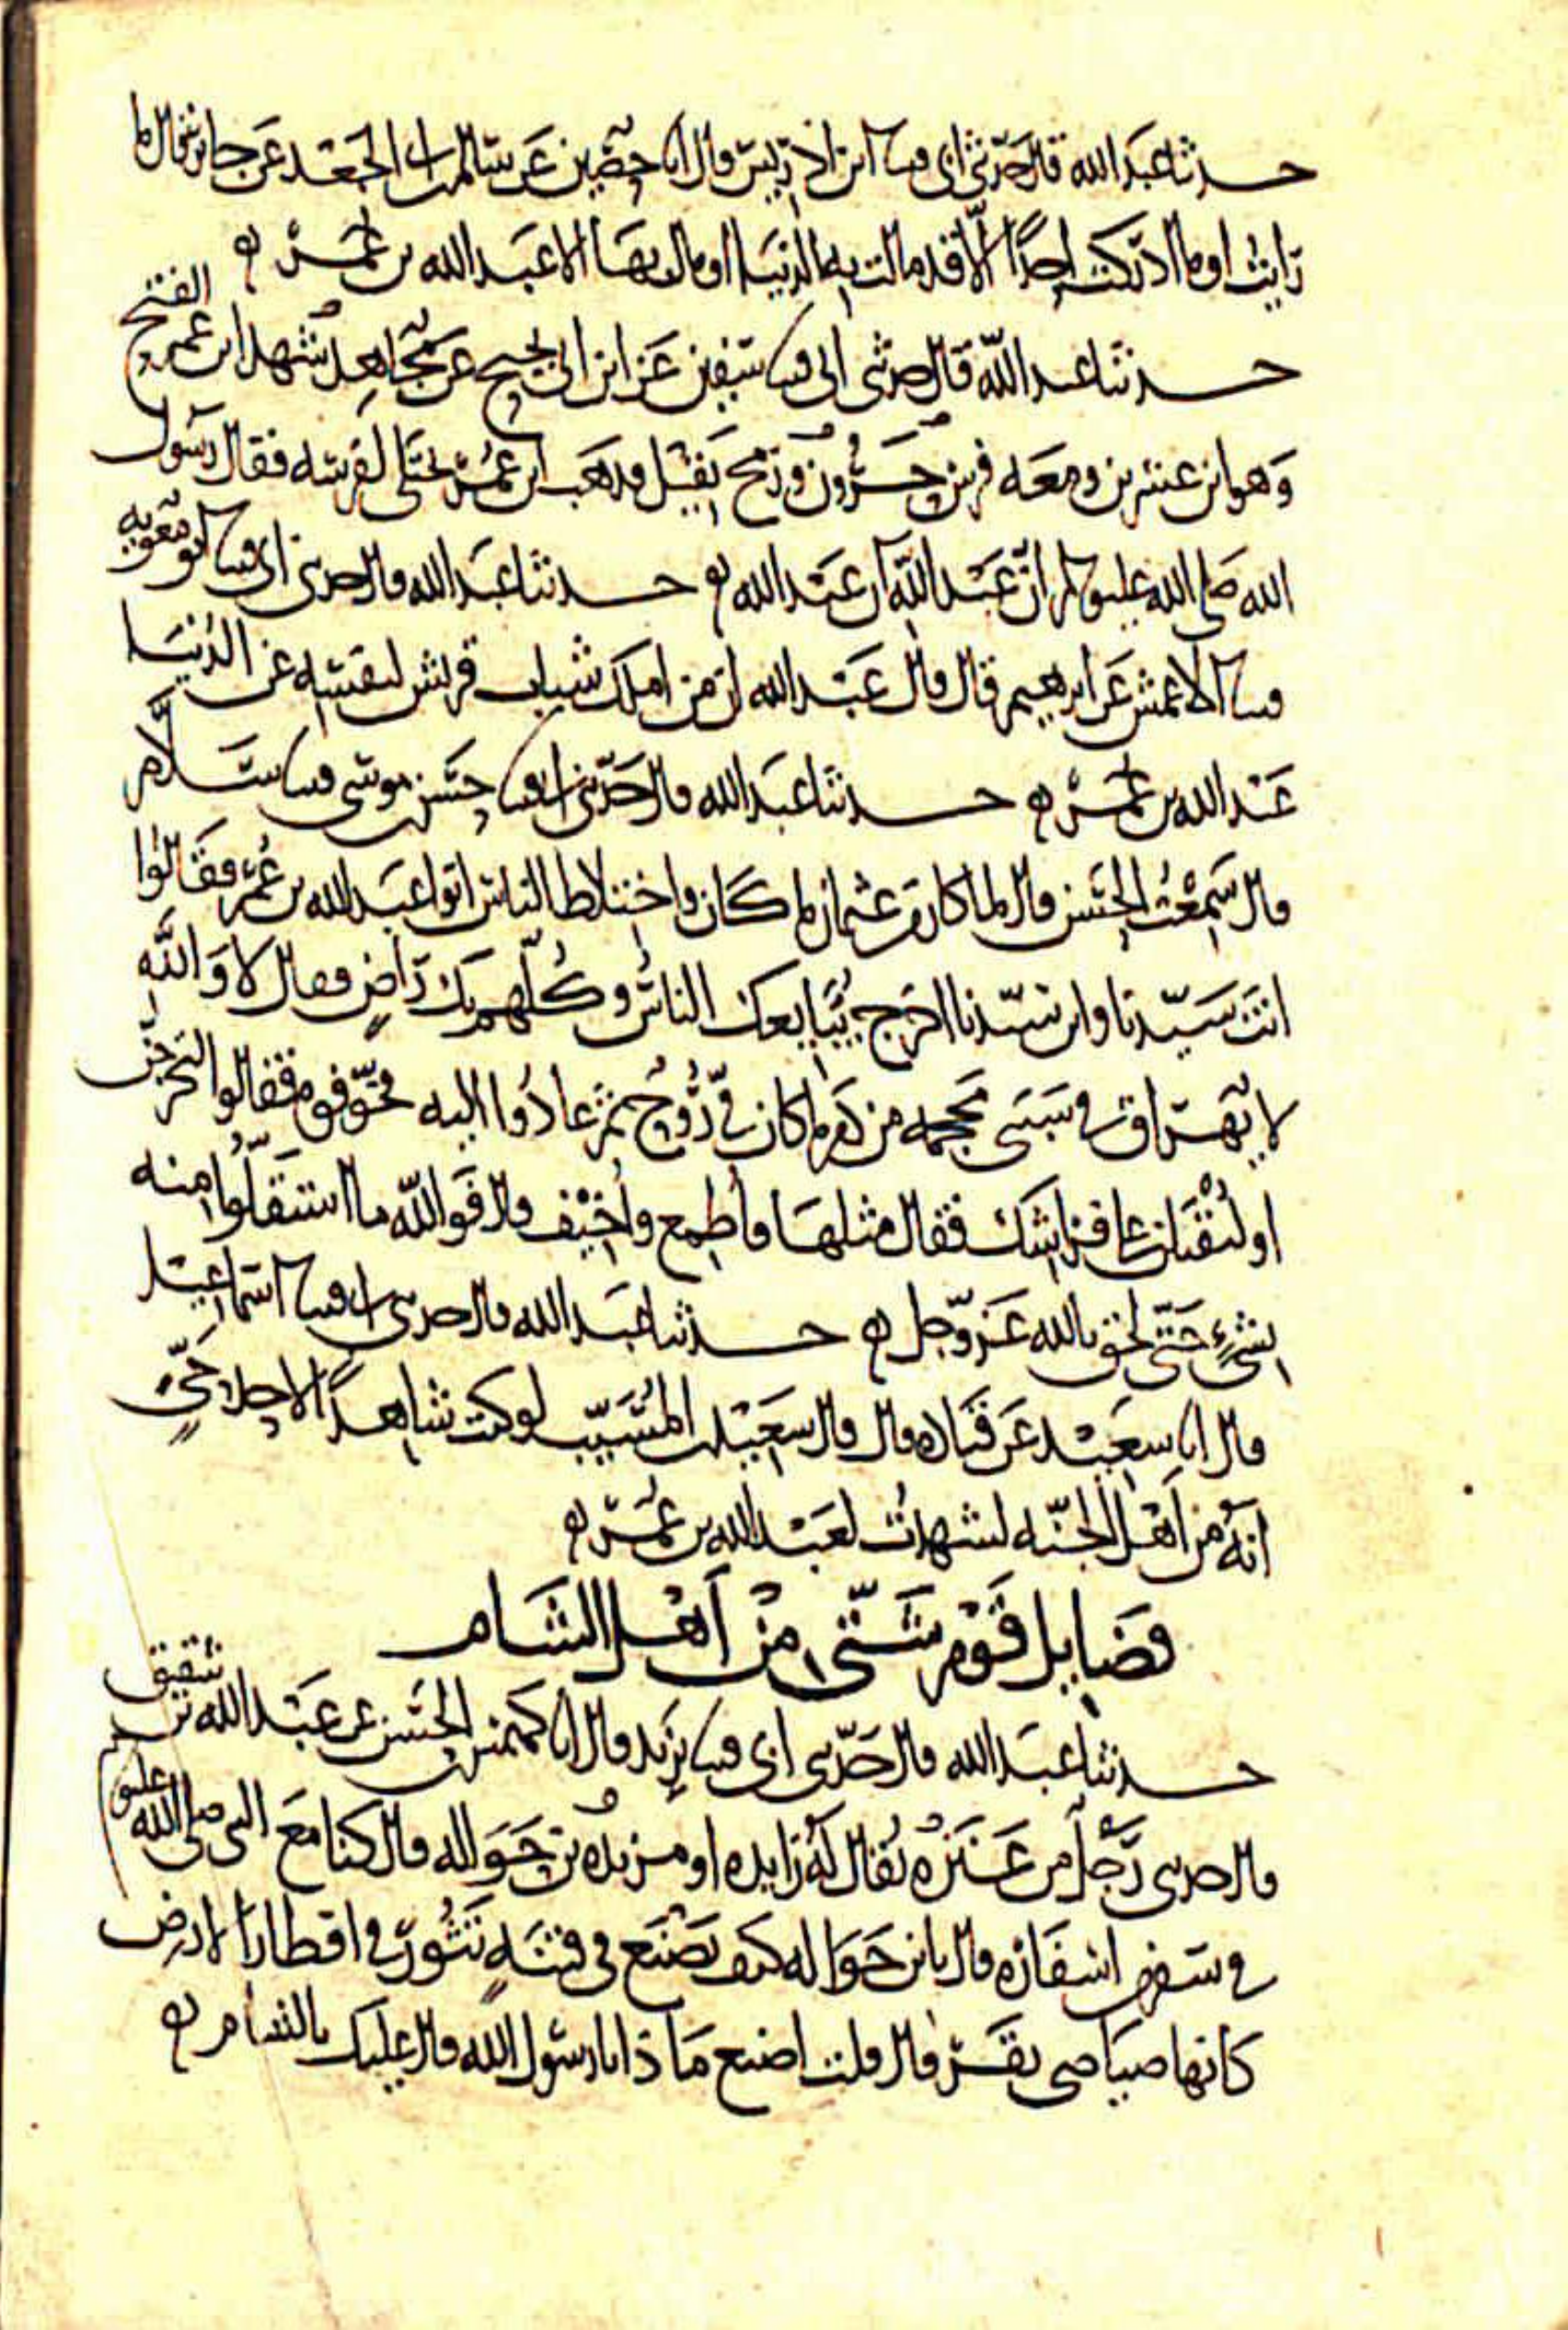 حدثنا عبد الله قال حدثني ابي قثنا ابن ادريس قال انا حصين عن سالم بن ابي الجعد عن جابر قال ما
رايت او ما ادركت احدا الا قد مالت به الدنيا او مال بها الا عبد الله بن عمر ه
حدثنا عبد الله قال حدثني ابي قثنا سفين عن ابن ابي نجيح عن مجاهد شهد ابن عمر الفتح
وهو ابن عشرين ومعه فرس حرون ورمح ثقيل فذهب ابن عمر يختلي لفرسه فقال رسول
الله صلى الله عليه وسلم ان عبد الله ان عبد الله ه حدثنا عبد الله قال حدثني ابي قثنا ابو معوية
قثنا الاعمش عن ابرهيم قال قال عبد الله ان من املك شباب قريش لنفسه عن الدنيا
عبد الله بن عمر ه حدثنا عبد الله قال حدثني ابي قثنا حسن بن موسى قثنا سلام
قال سمعت الحسن قال لما كان من عثمان ما كان واختلاط الناس اتوا عبد الله بن عمر فقالوا
انت سيدنا وابن سيدنا اخرج يبايعك الناس وكلهم بك راض فقال لا والله
لا يهراق في سببي محجمة من دم ما كان في روح ثم عادوا اليه فخوفوه فقالوا لتخرجن
او لتقتلن على فراشك فقال مثلها واطمع واخيف قال فوالله ما استقلوا منه
بشيء حتى لحق بالله عز وجل ه حدثنا عبد الله قال حدثني ابي قثنا اسماعيل
قال انا سعيد عن قتادة قال قال سعيد بن المسيب لو كنت شاهدا لاحد حي
انه من اهل الجنه لشهدت لعبد الله بن عمر ه
فضايل قوم شتى من اهل الشام
حدثنا عبد الله قال حدثني ابي قثنا يزيد قال انا كهمس بن الحسن عن عبد الله بن شقيق
قال حدثني رجل من عنزه يقال له زايده او مزيده بن حواله قال كنا مع النبي صلى الله عليه وسلم
في سفر من اسفاره قال يا ابن حواله كيف تصنع في فتنه تثور في اقطار الارض
كانها صياصي بقر قال قلت اصنع ماذا يا رسول الله قال عليك بالشام ه